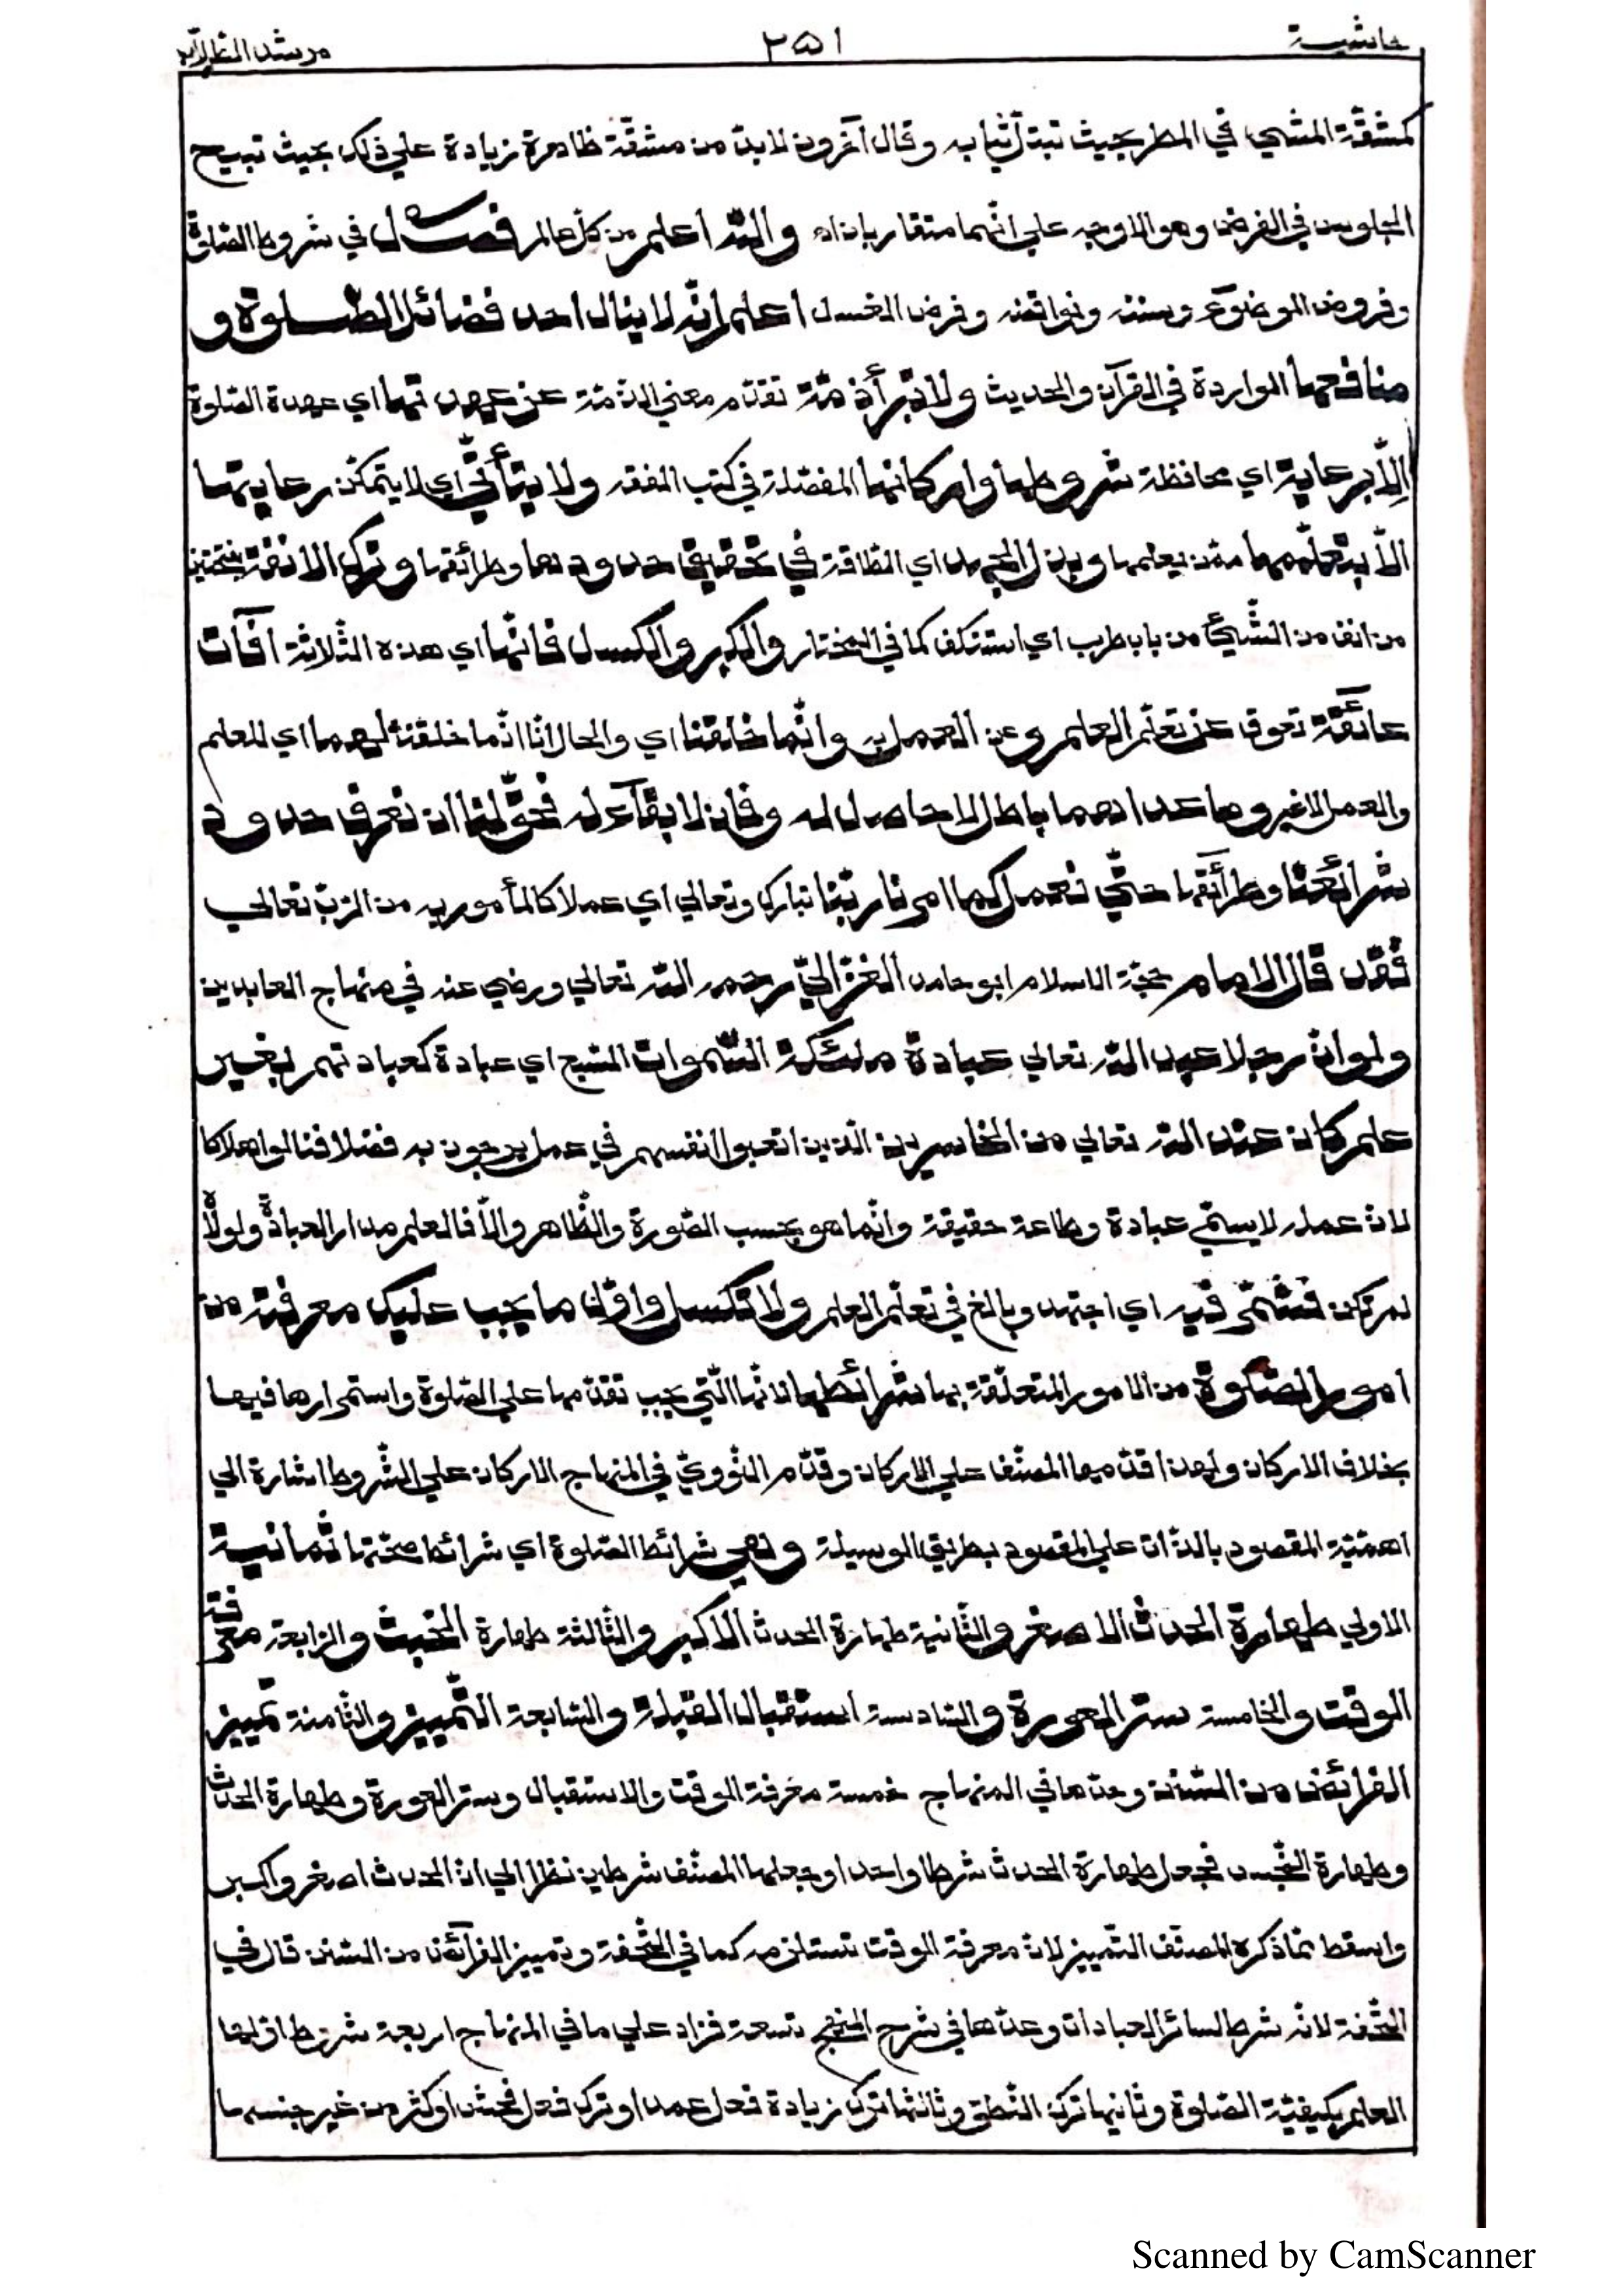 حاشيـة ٢٥١ مرشد الطلاب
كمشقّة المشي في المطر بحيث تبتلّ ثيابه وقال آخرون لا بدّ من مشقّة ظاهرة زيادة علي ذلك بحيث تبيح
الجلوس في الفرض وهو الاوجه علي انّهما متقاربان اه والله اعلم من كلّ عالم فصل في شروط الصّلوة
وفروض الوضوء وسننه ونواقضه وفرض الغسل اعلم انّه لا ينال احد فضائل الصّلوة و
منافعها الواردة في القرآن والحديث ولا تبرأ ذمّة تقدّم معني الذّمّة عن عهدتها اي عهدة الصّلوة
إلّا برعاية اي محافظة شروطها واركانها المفصّلة في كتب الفقه ولا يتأتّي اي لا يتمكّن رعايتها
الّا بتعلّمها ممّن يعلمها وبذل الجهد اي الطّاقة في تحقيق حدودها وطرائقها وترك الانفة بفتحتين
من انف من الشّيئ من باب طرب اي استنكف كما في المختار والكبر والكسل فانّها اي هذه الثّلاثة آفات
عائقة تعوق عن تعلّم العلم وعن العمل به وانّما خلقنا اي والحال انّا انّما خلقنا لهما اي للعلم
والعمل لا غير وما عداهما باطل لا حاصل له وفان لا بقآء له فحقّ لنا ان نعرف حدود
شرائعنا وطرآئقها حتّي نعمل كما امرنا ربّنا تبارك وتعالي اي عملا كالمأمور به من الرّبّ تعالي
فقد قال الامام حجّة الاسلام ابو حامد الغزاليّ رحمه الله تعالي ورضي عنه في منهاج العابدين
ولو انّ رجلا عبد الله تعالي عبادة ملئكة السّموات السّبع اي عبادة كعبادتهم بغير
علم كان عند الله تعالي من الخاسرين الّذين اتعبوا انفسهم في عمل يرجون به فضلا فنالوا هلاكا
لانّ عمله لا يسمّي عبادة وطاعة حقيقة وانّما هو بحسب الصّورة والظّاهر والّا فالعلم مدار العبادة ولولاه
لم تكن فشمّر فيه اي اجتهد وبالغ في تعلّم العلم ولا تكسل واوّل ما يجب عليك معرفته من
امور الصّلوة من الامور المتعلّقة بها شرائطها لانّها الّتي يجب تقدّمها علي الصّلوة واستمرارها فيها
بخلاف الاركان ولهذا قدّمها المصنّف علي الاركان وقدّم النّوويّ في المنهاج الاركان علي الشّروط اشارة الي
اهمّيّة المقصود بالذّات علي المقصود بطريق الوسيلة وهي شرائط الصّلوة اي شرائط صحّتها ثمانية
الاولي طهارة الحدث الاصغر والثّانية طهارة الحدث الاكبر والثّالثة طهارة الخبث والرّابعة معرفة
الوقت والخامسة ستر العورة والسّادسة استقبال القبلة والسّابعة التّمييز والثّامنة تمييز
الفرائض من السّنن وعدّها في المنهاج خمسة معرفة الوقت والاستقبال وستر العورة وطهارة الحدث
وطهارة النّجس فجعل طهارة الحدث شرطا واحدا وجعلها المصنّف شرطين نظرا الي انّ الحدث اصغر واكبر
واسقط ممّا ذكره المصنّف التّمييز لانّ معرفة الوقت تستلزمه كما في التّحفة وتمييز الفرآئض من السّنن قال في
التّحفة لانّه شرط لسائر العبادات وعدّها في شرح المنهج تسعة فزاد علي ما في المنهاج اربعة شروط اوّلها
العلم بكيفيّة الصّلوة وثانيها ترك النّطق وثالثها ترك زيادة فعل عمدا وترك فعل فحش او كثر من غير جنسها
Scanned by CamScanner